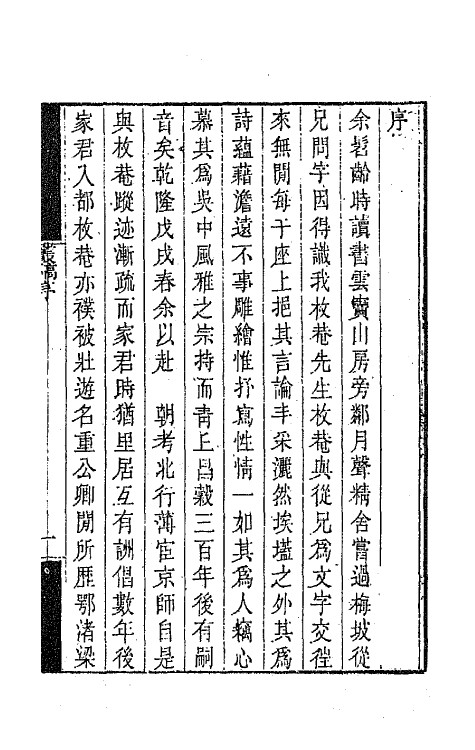 序
余髫齡時讀書雲寶山房旁鄰月聲精舍嘗過梅坡從
兄問字因得識我枚菴先生枚菴與從兄爲文字交徃
來無閒每于座上挹其言論丰采灑然埃壒之外其爲
詩蘊藉澹遠不事雕繪惟抒寫性情一如其爲人竊心
慕其爲吳中風雅之宗持而靑丘昌穀三百年後有嗣
音矣乾隆戊戌春余以赴　朝考北行薄宦京師自是
與枚菴蹤迹漸疏而家君時猶里居互有詶倡數年後
家君入都枚菴亦襆被壯遊名重公卿閒所歷鄂渚梁
叢稿序
一